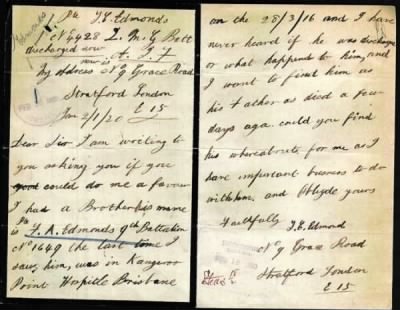 Pte T.E. Edmonds
No 4428 2. M.G. Batt
discharged now A.I.F
now is
My address No 9 Grace Road
Stratford London
E 15
Jan 2/1/20
Dear Sir I am writing to
you asking you if you
good could do me a favour
I had a Brother his name
Pte
is F.A. Edmonds 9th Battalion
No 1649 the last time I
saw him, was in Kangaroo
Point Hospitle Brisbane
on the 28/3/16 and I have
never heard if he was discharge
or what happens to him, and
I want to find him as
his Father as died a few
days ago. could you find
his whereabouts for me as I
have important business to do
with him. and Oblyde yours
Faithfully T.E. Edmond
No 9 Grace Road
Stratford London
E 15